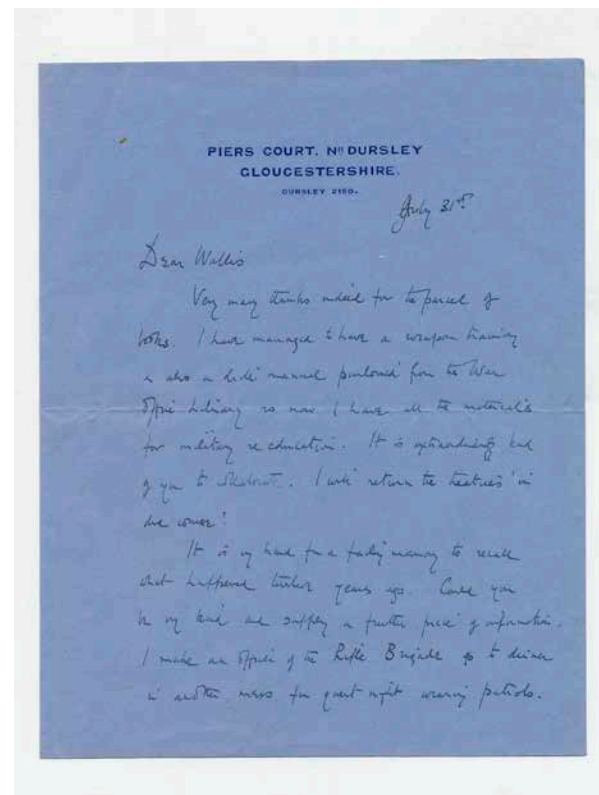 PIERS COURT, Nr DURSLEY
GLOUCESTERSHIRE.
DURSLEY 2150.
July 31st
Dear Wallis
Very many thanks indeed for the parcel of
books. I have managed to have a weapon training
also a manual purloined from the War
Office Library so now I have all the materials
for military re education. It is extraordinarily kind
of you to I will return the in
due course.
It is very hard for a fading memory to recall
what happened twelve years ago. Could you
be very kind and supply a further piece of information.
I make an officer of the Rifle Brigade go to dinner
in another mess for guest night wearing patrols.